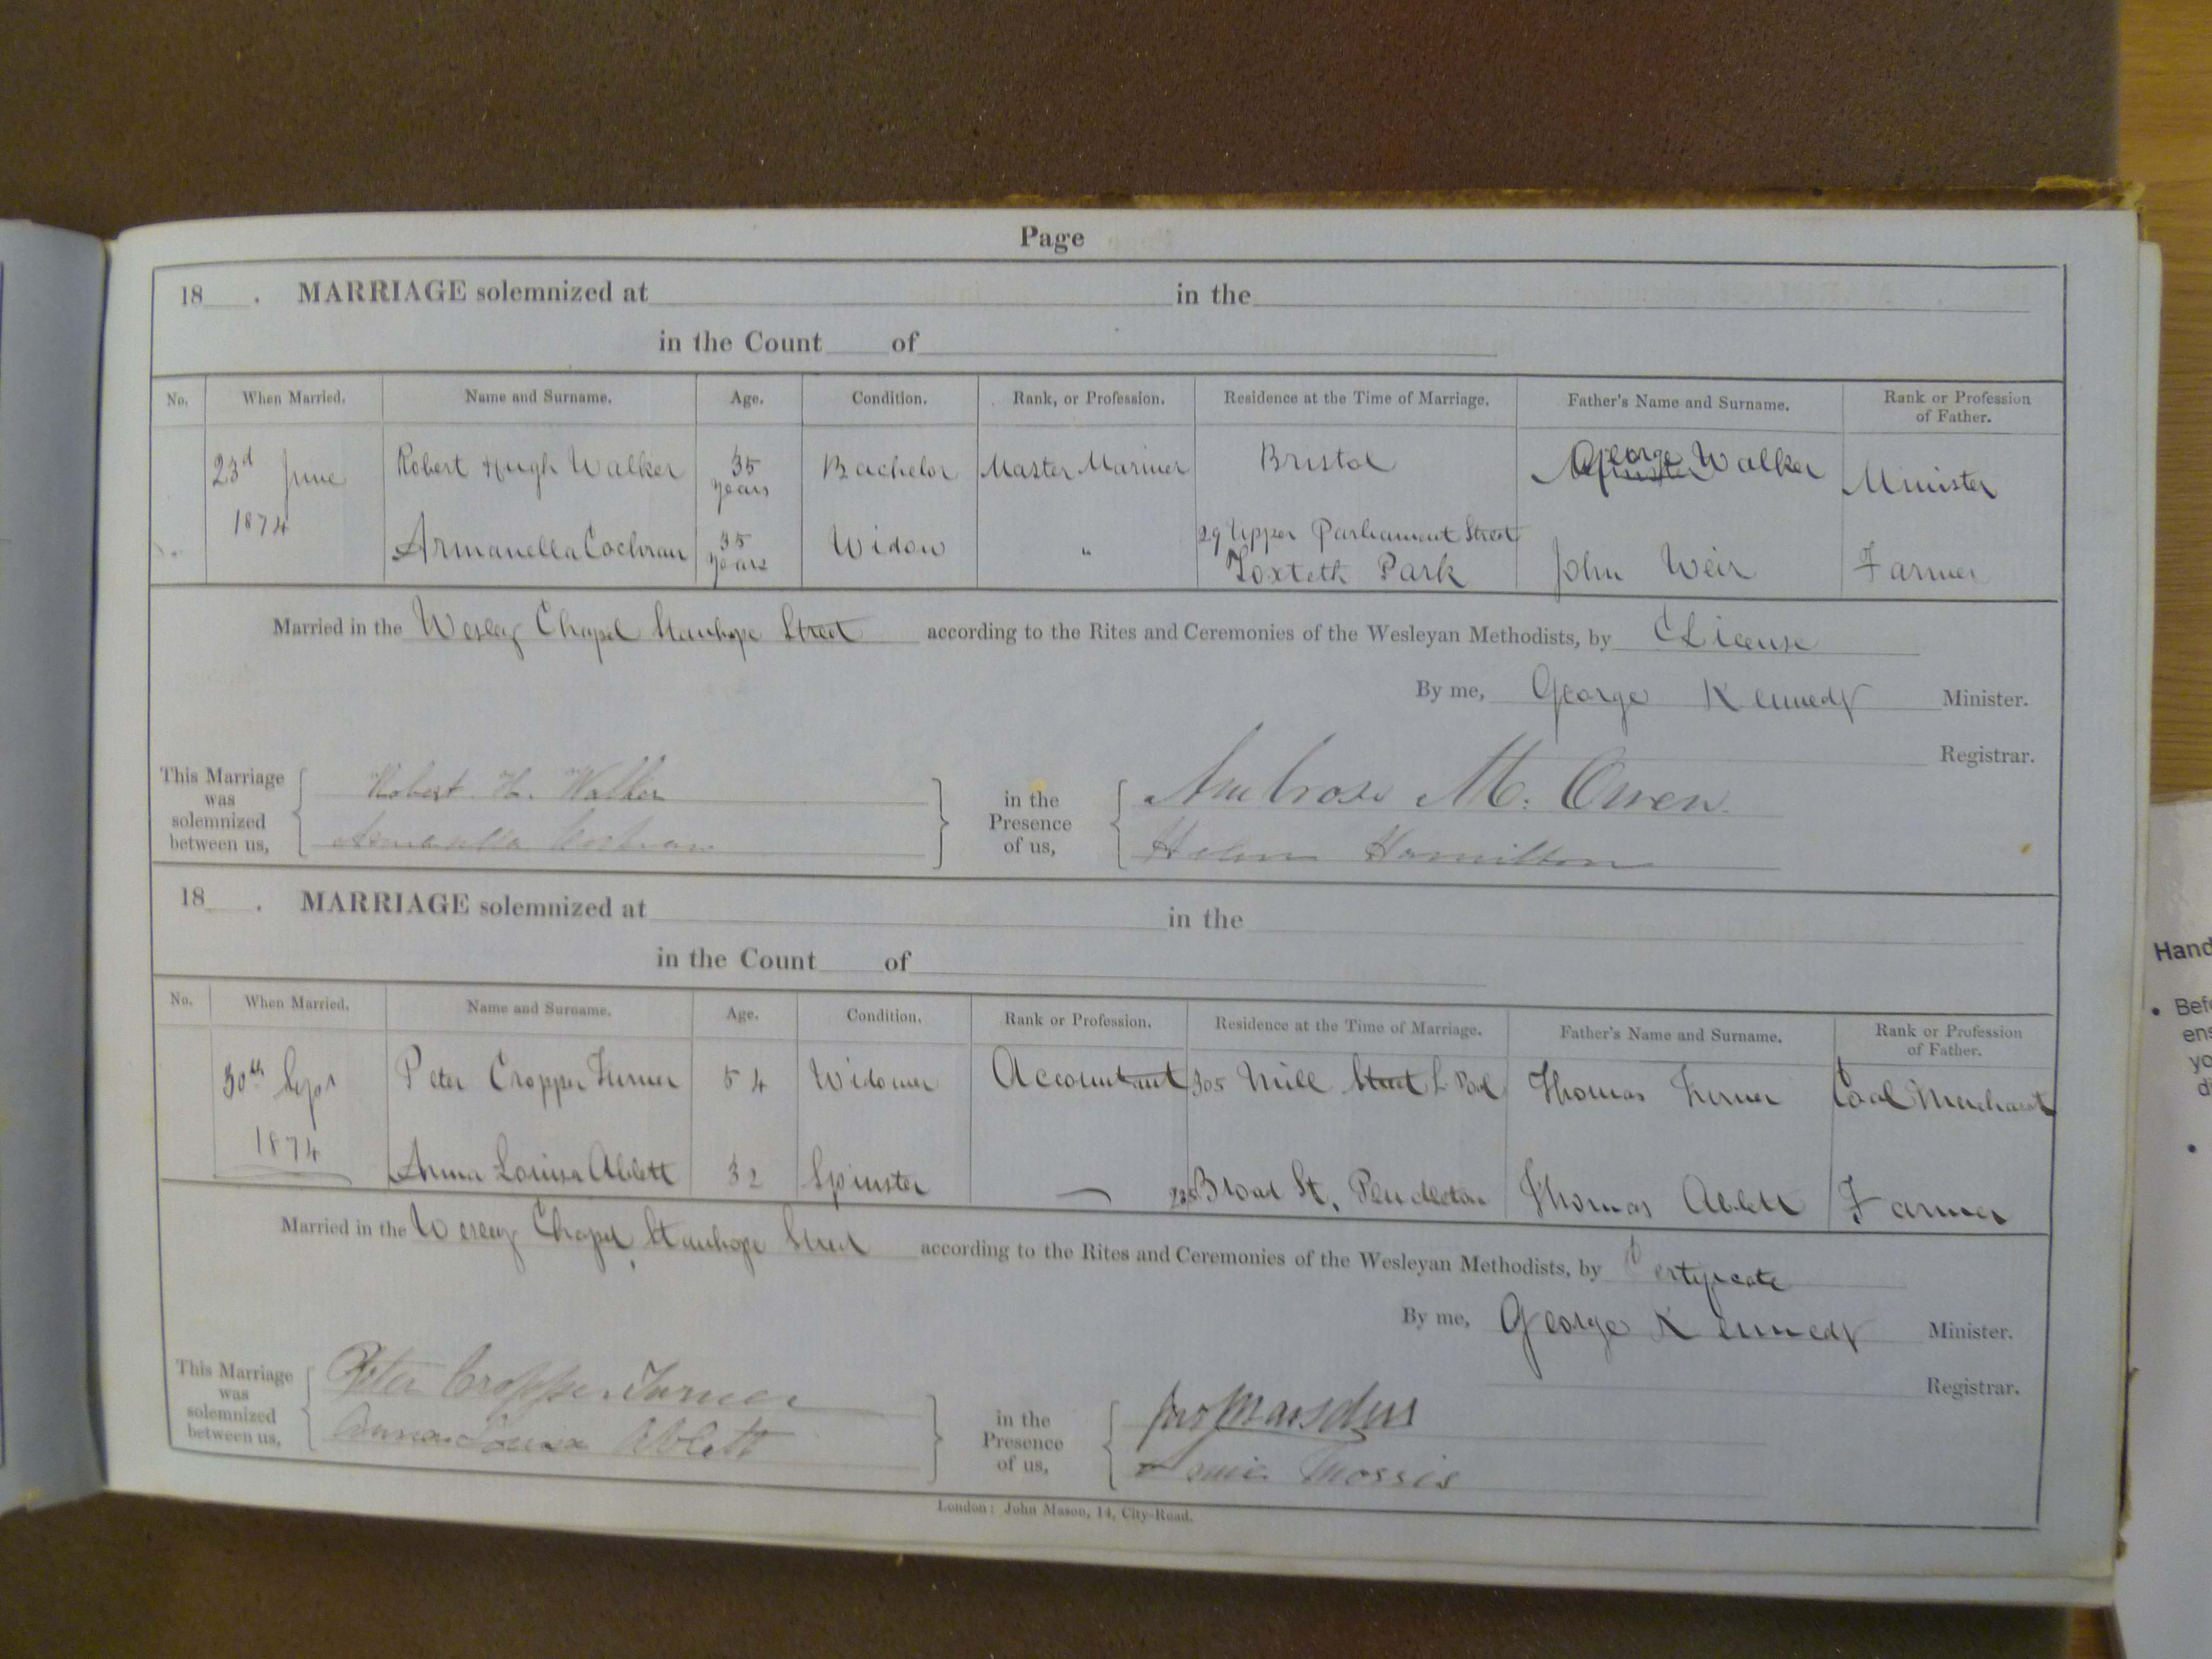 Page
18 . MARRIAGE solemnized at in the
in the Count of
No. When Married. Name and Surname. Age. Condition. Rank, or Profession. Residence at the Time of Marriage. Father's Name and Surname. Rank or Profession of Father.
23d June Robert Hugh Walker 35 years Bachelor Master Mariner Bristol George Walker Minister
1874 Armanella Cochran 35 years Widow " 29 Upper Parliament Street Toxteth Park John Weir Farmer
Married in the Wesley Chapel Stanhope Street according to the Rites and Ceremonies of the Wesleyan Methodists, by License
By me, George Kennedy Minister.
Registrar.
This Marriage was solemnized between us, Robert H. Walker in the Presence of us, Ambrose M. Owen
Armanella Cochran Helen Hamilton
18 . MARRIAGE solemnized at in the
in the Count of
No. When Married. Name and Surname. Age. Condition. Rank or Profession. Residence at the Time of Marriage. Father's Name and Surname. Rank or Profession of Father.
30th Sept Peter Cropper Turner 54 Widower Accountant 305 Mill Street L.Pool Thomas Turner Coal Merchant
1874 Anna Louisa Ablett 32 Spinster — Broad St. Pendleton Thomas Ablett Farmer
Married in the Wesley Chapel, Stanhope Street according to the Rites and Ceremonies of the Wesleyan Methodists, by Certificate
By me, George Kennedy Minister.
Registrar.
This Marriage was solemnized between us, Peter Cropper Turner in the Presence of us, Jas Marsden
Anna Louisa Ablett Morris
London: John Mason, 14, City-Road.
Hand
• Bef
ens
yo
d
•